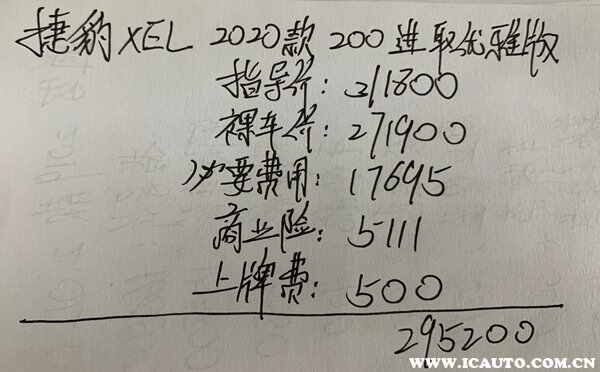 捷豹XEL 2020款 200进取优雅版
指导价：311800
裸车价：271900
必要费用：17695
商业险：5111
上牌费：500
295200
WWW.ICAUTO.COM.CN